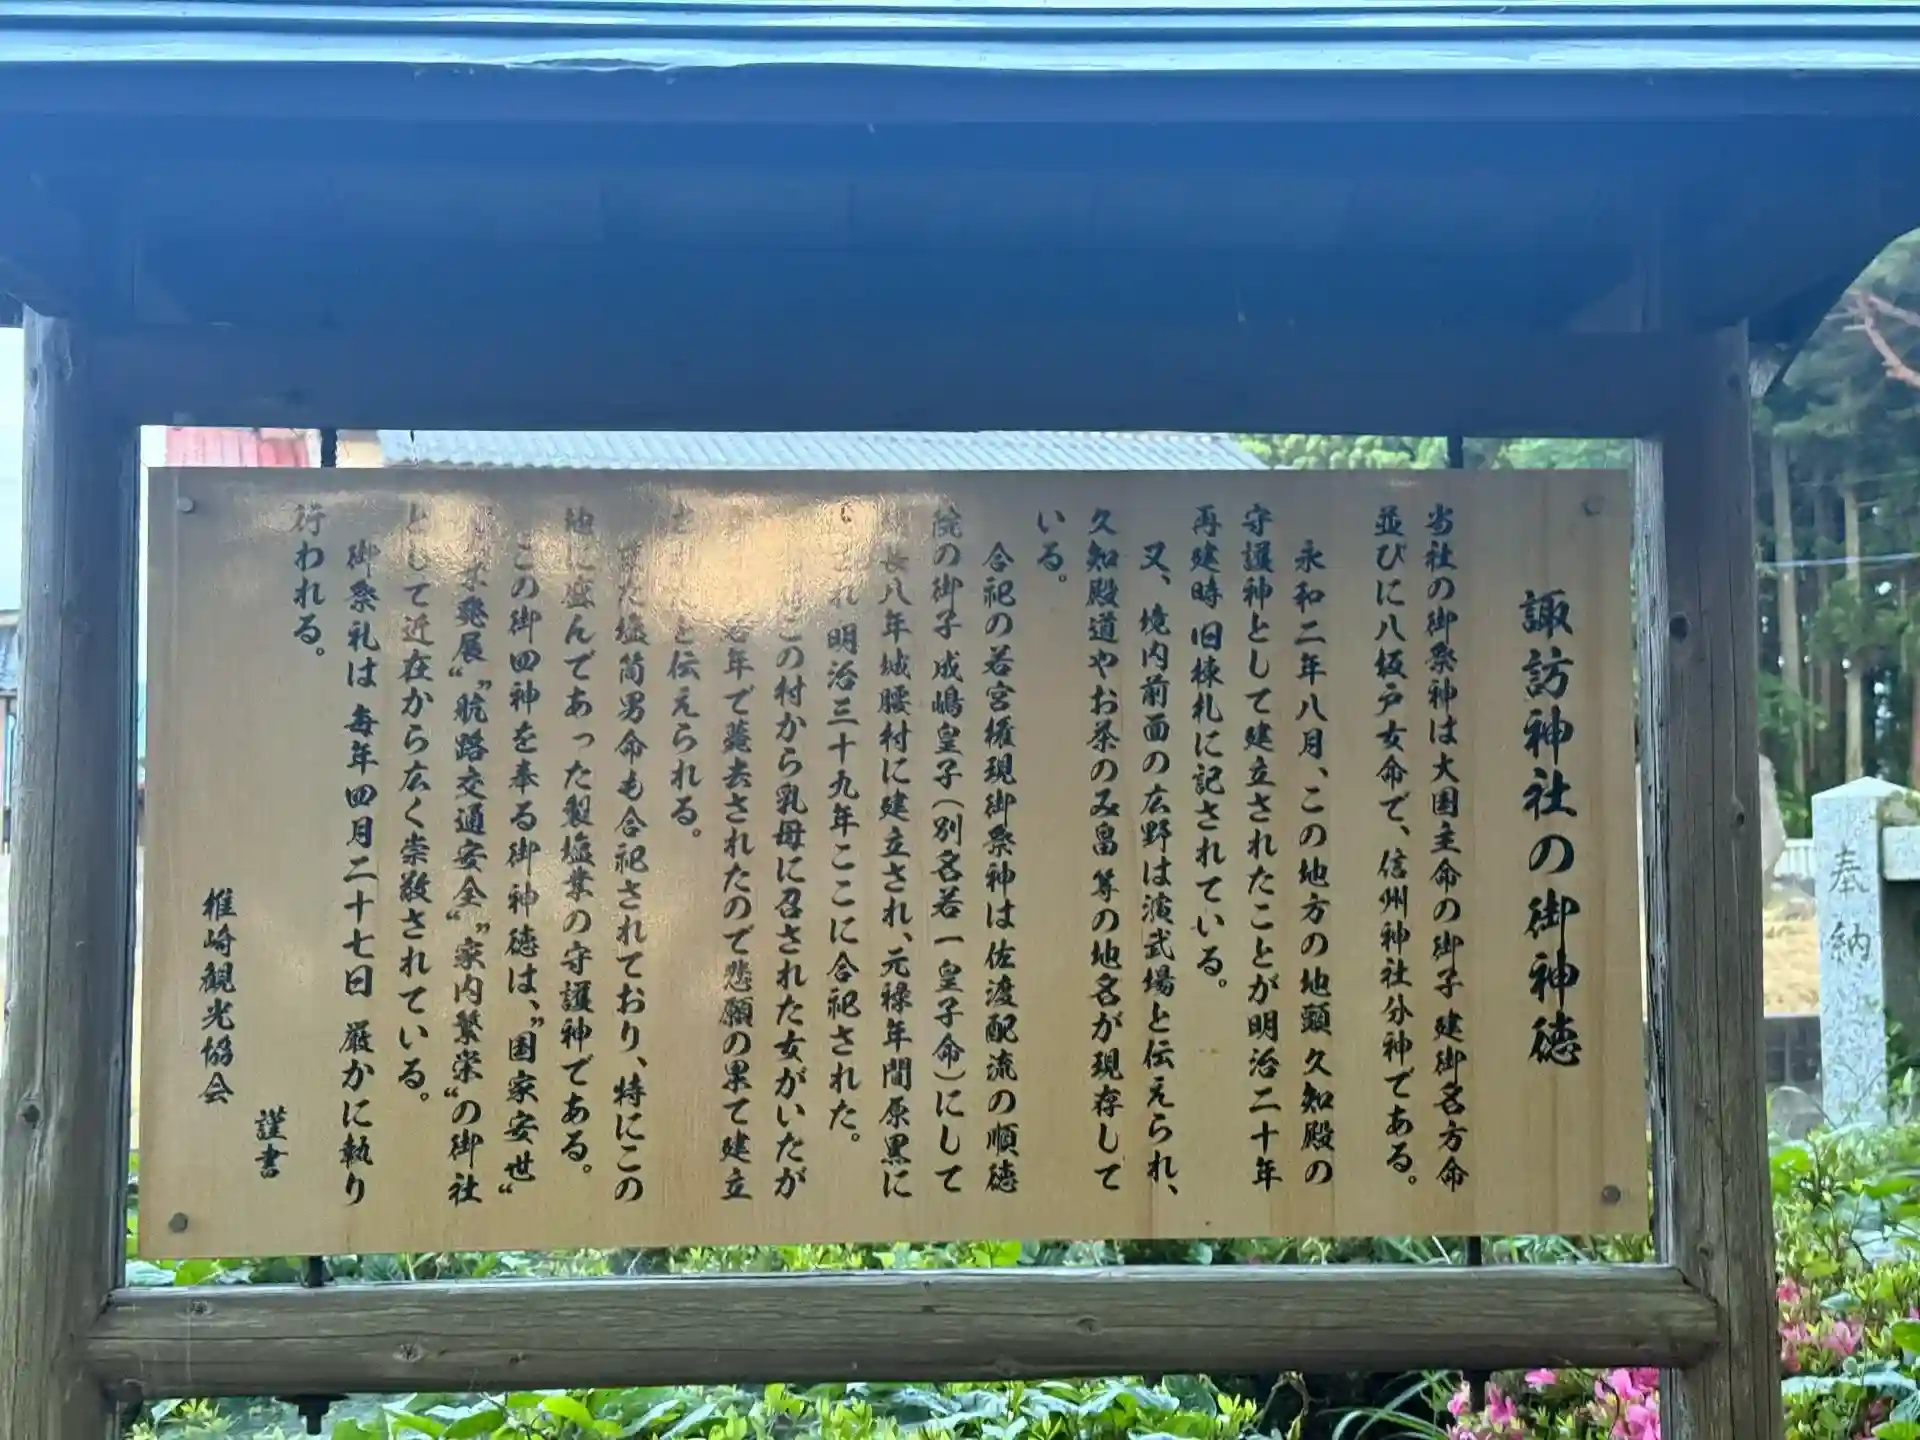 諏訪神社の御神徳
当社の御祭神は大国主命の御子建御名方命
並びに八坂戸女命で、信州神社分神である。
永和二年八月、この地方の地頭久知殿の
守護神として建立されたことが明治二十年
再建時旧棟札に記されている。
又、境内前面の広野は演武場と伝えられ、
久知殿道やお茶のみ畠等の地名が現存して
いる。
合祀の若宮権現御祭神は佐渡配流の順徳
院の御子成嶋皇子(別名若一皇子命)にして
長八年城腰村に建立され、元禄年間原黒に
れ明治三十九年ここに合祀された。
この村から乳母に召された女がいたが
若年で薨去されたので悲願の果て建立
と伝えられる。
また塩筒男命も合祀されており、特にこの
地に盛んであった製塩業の守護神である。
この御四神を奉る御神徳は、"国家安世"
発展""航路交通安全""家内繁栄"の御社
として近在から広く崇敬されている。
御祭礼は毎年四月二十七日 厳かに執り
行われる。
謹書
椎崎観光協会
奉納